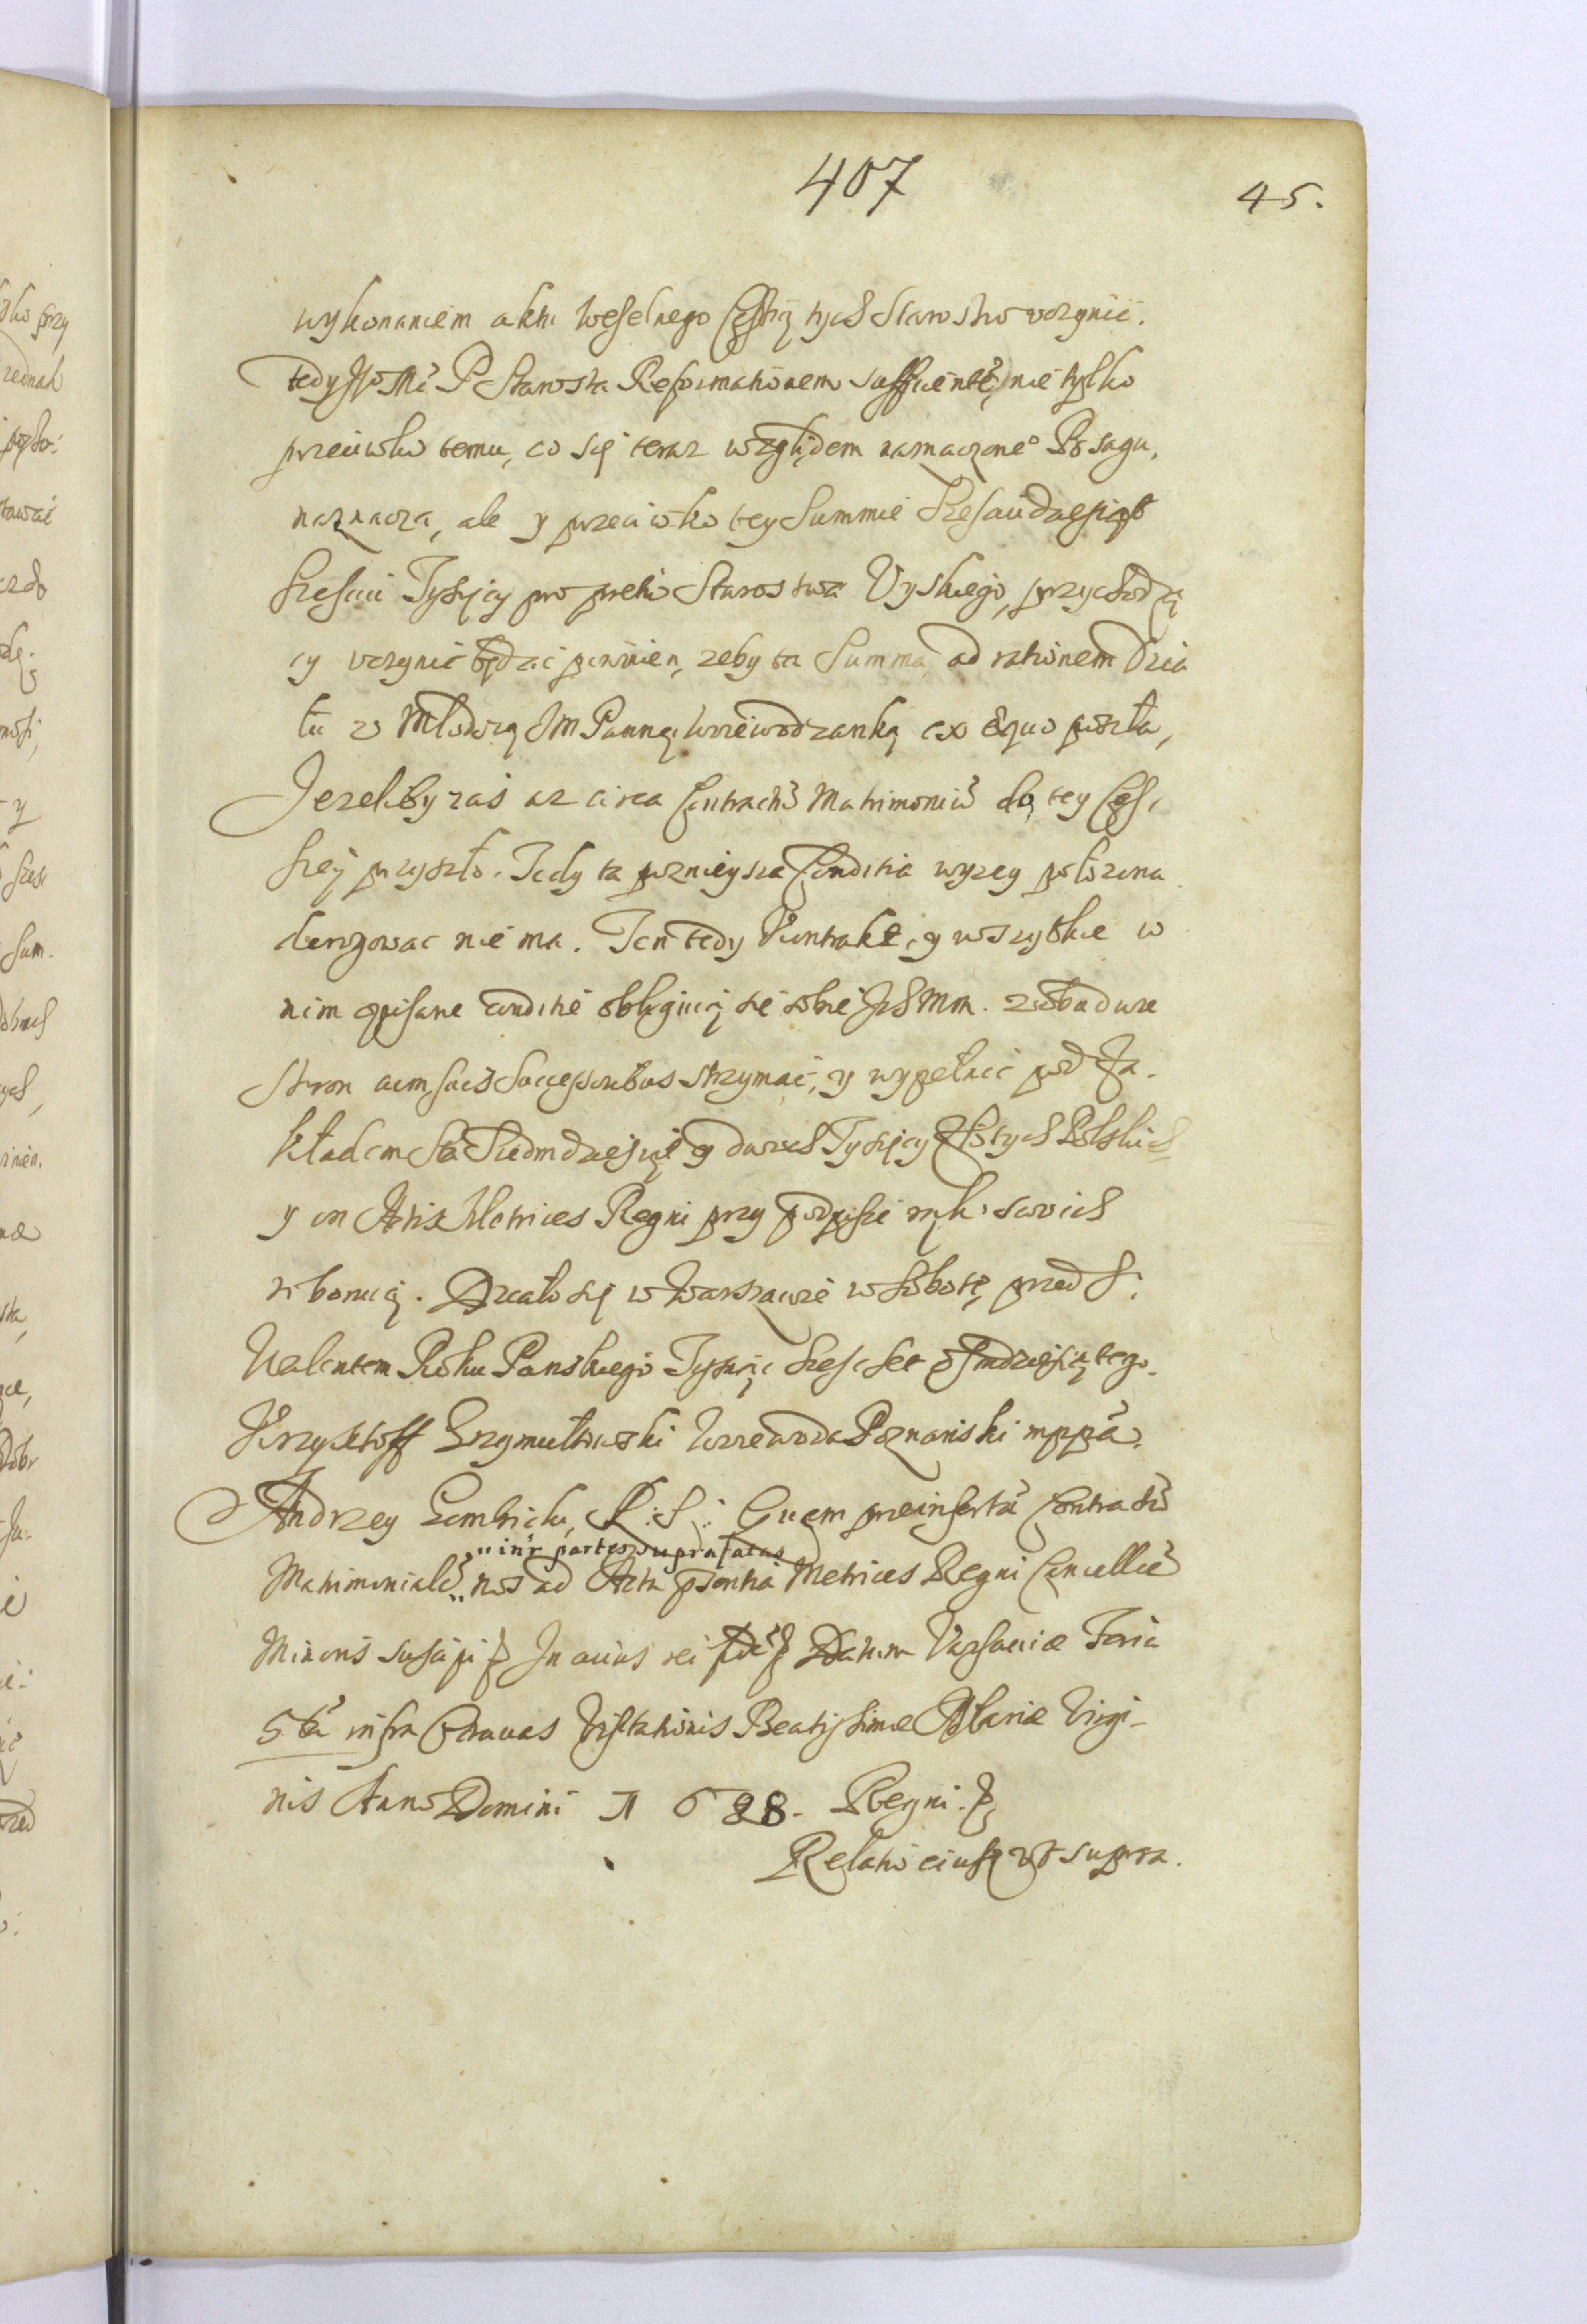 407
45.
wykonaniem aktu Weselnego Cessią tych Starostw uczynic.
tedy JeoMć P Starosta Reformationem sufficientẽ, nie tylko
przeciwko temu, co się teraz względem naznaczone° Posagu,
naznacza, ale y przeciwko tey Summie Szescudziesiąt
Szesciu Tysięcy pro pretio Starostwa Uyskiego, przychodzą
cy uczynic będzie powinien, zeby ta Summa ad rationem Dzia
łu z Młodszą JM Panną Woiewodzanką ex æquo poszła,
Jezeliby zas az circa Contractũ Matrimoniũ do tey Cess¸
siey przyszło. Tedy ta poznieysza Conditia wyzey położona
derogowac nie ma. Ten tedy Kontrakt, y wszytkie w
nim opisane conditie obliguią się sobie JchMm. z obudwu
stron cum suis Successoribus strzymać, y wypełnic pod Za-
kładem Sta Siedmdziesiąt y dwuch Tysięcy Złotych Polskich
y in Actis Metrices Regni przy podpisie rąk swoich
roboruią. Działo się w Warszawie w Sobotę przed S.
Valentem Roku Panskiego Tysiąc Szescset osmdziesiątego.
Krzysztoff Grzymułtowski Woiewoda Poznanski mppã.
Andrzey Gembicki, L: S: Quem præinsertũ Contractũ
"inr̃ partes suprafatas
Matrimonialẽ " nos ad Acta p̃sentia Metrices Regni Cancellæ
Minoris suscipi ꝑ In cuius rei fidẽ ꝑ Datum Varsaviæ Feria
5tã infra Octavas Visitationis Beatissimæ Mariæ Virgi-
nis Anno Domini 1688. Regni. ꝑ
Relatio eiusꝗ ut supra.